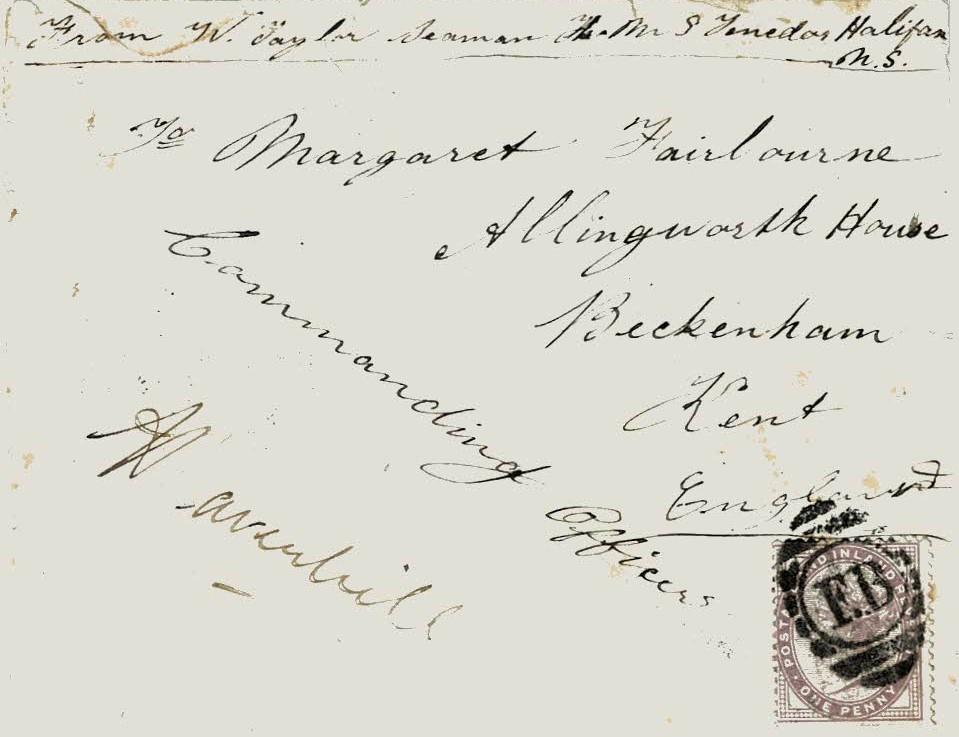 From W. Taylor Seaman H.M.S Tenedos Halifax
N.S.
To Margaret Fairbourne
Allingworth House
Beckenham
Kent
England
Commanding Officers
POSTAGE AND INLAND REVENUE
ONE PENNY
F.B